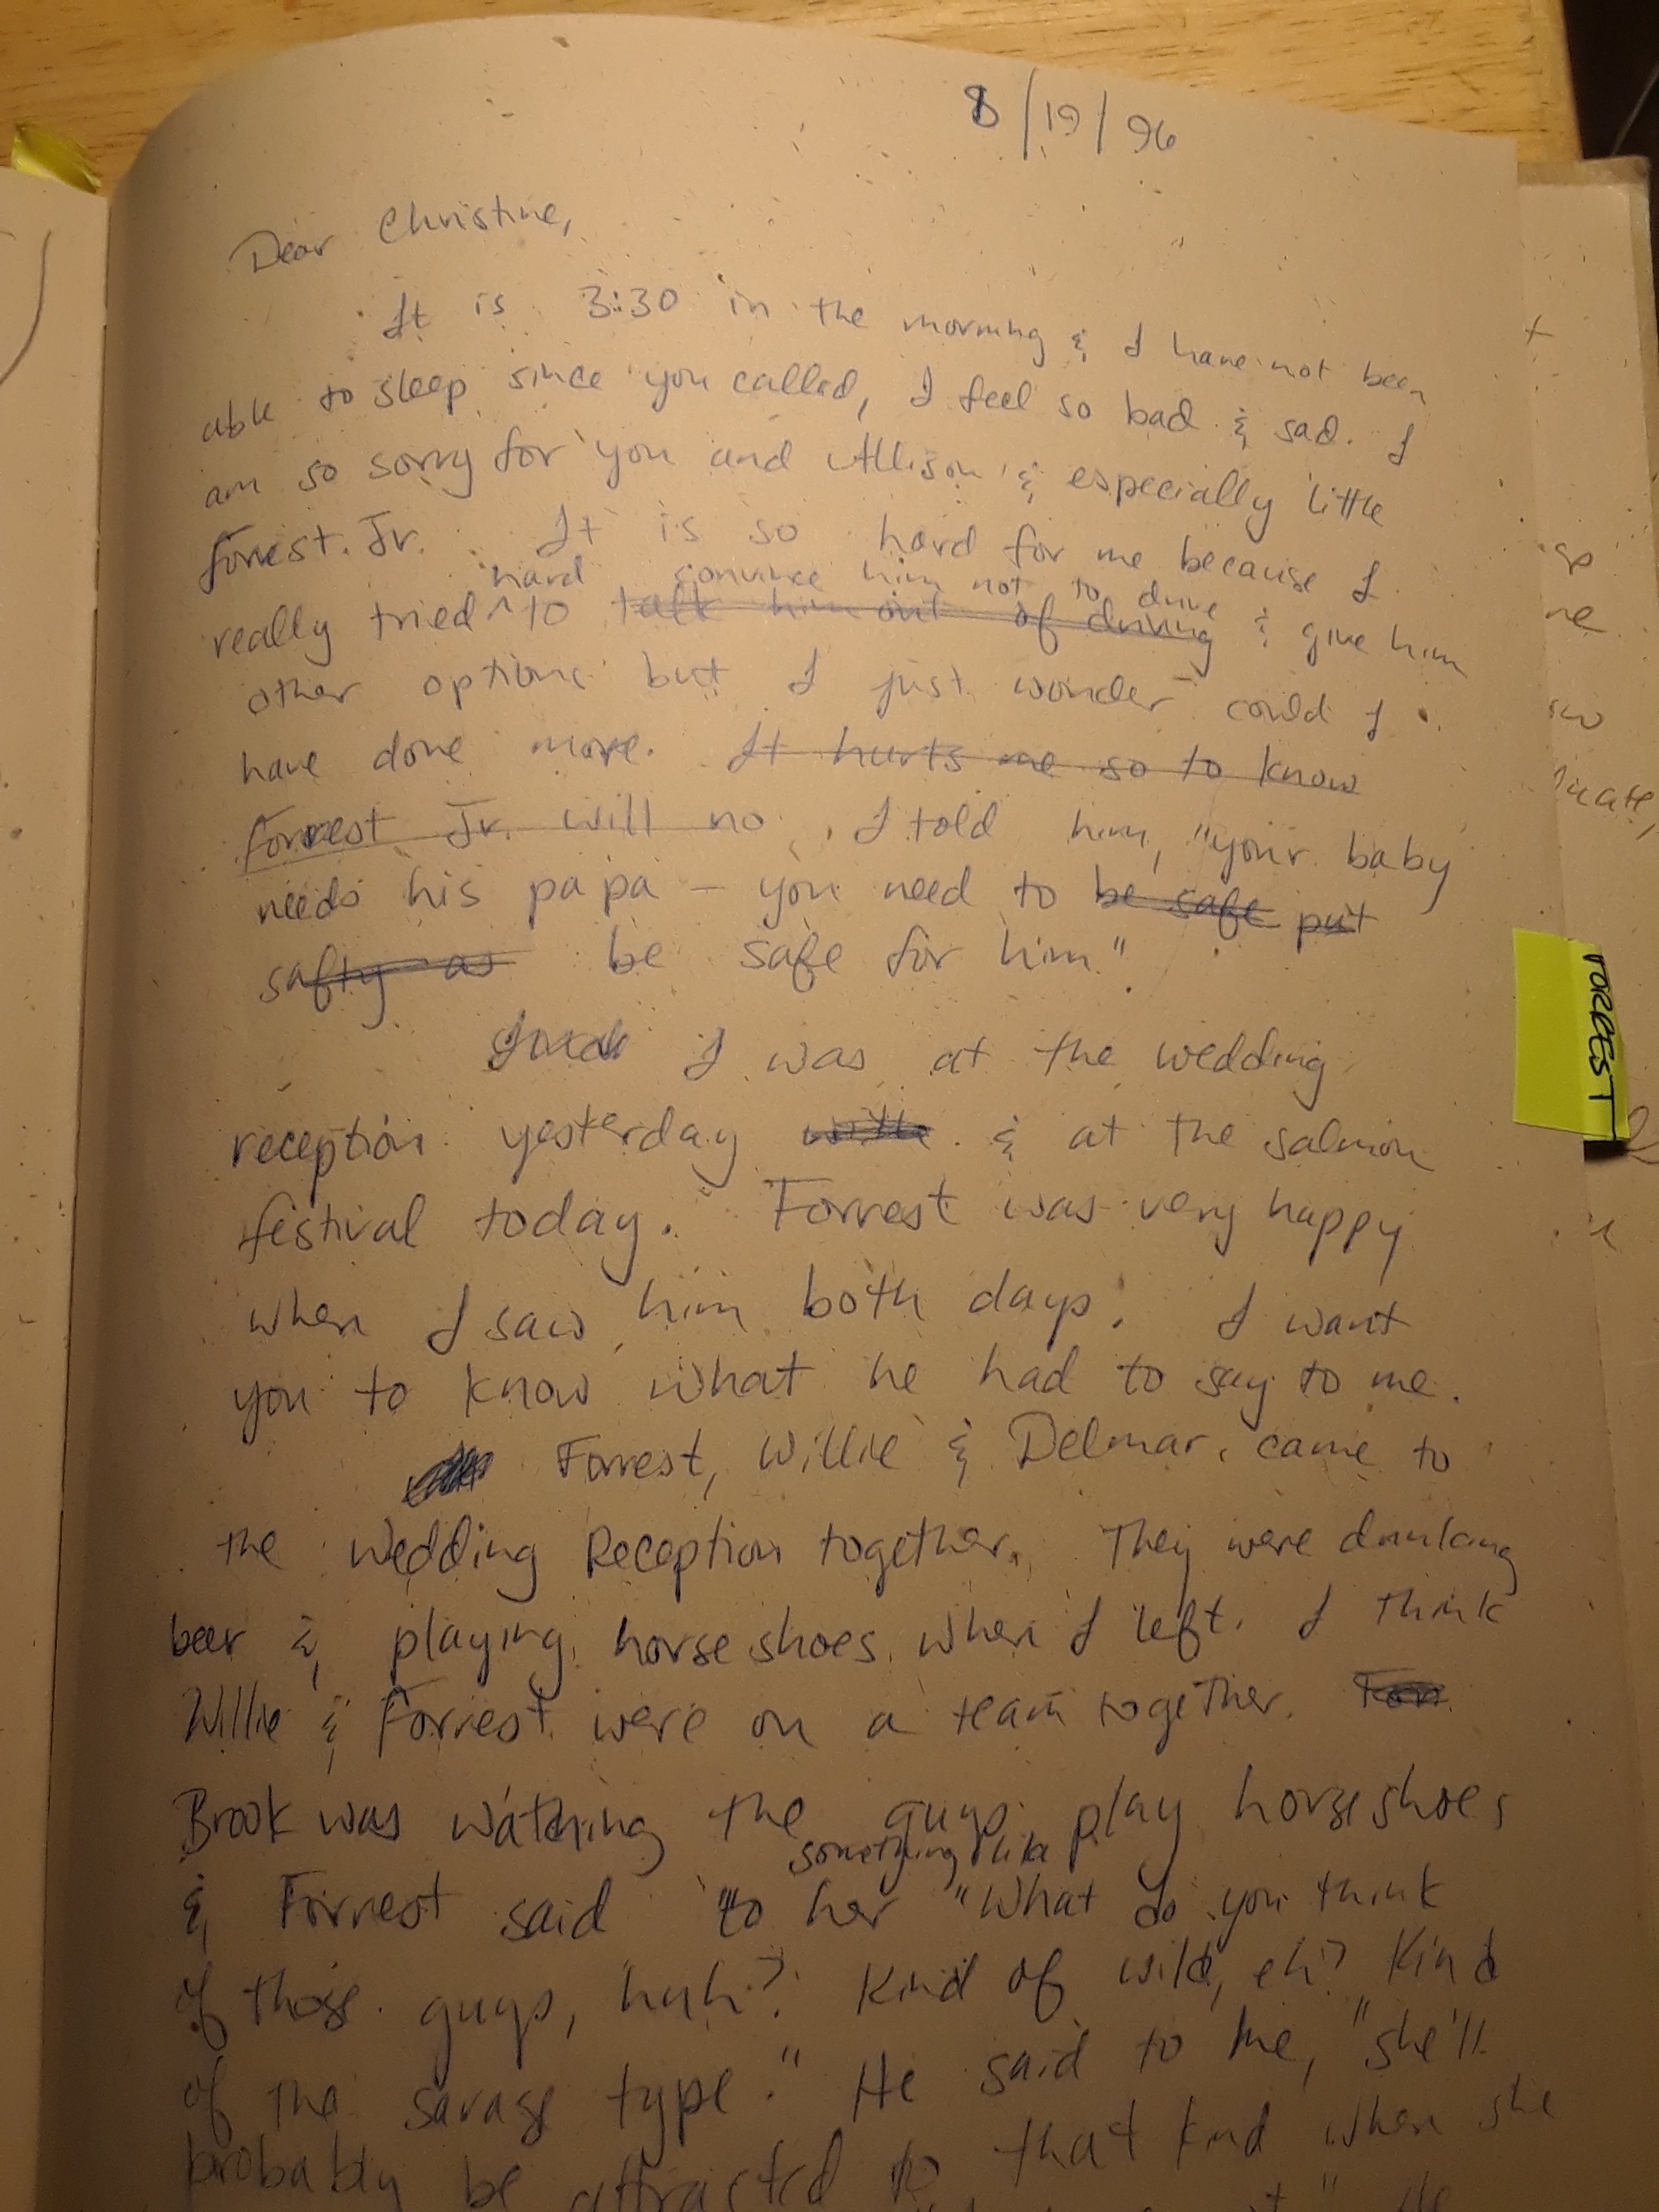 8/19/96
Dear Christine,
It is 3:30 in the morning & I have not been
able to sleep since you called, I feel so bad & sad. I
am so sorry for you and Allison & especially little
Forrest Jr. It is so hard for me because I
hard convince him not to drive
really tried ^ to talk him out of driving & give him
other options but I just wonder could I
have done more. It hurts me so to know
Forrest Jr. will no. I told him, "your baby
needs his papa - you need to be safe put
safty as be safe for him."
I was at the wedding
reception yesterday with & at the salmon
festival today. Forrest was very happy
when I saw him both days. I want
you to know what he had to say to me.
Forrest, Willie & Delmar came to
the Wedding Reception together. They were drinking
beer & playing horse shoes when I left. I think
Willie & Forrest were on a team together. For
Brook was watching the guys play horse shoes
something like
& Forrest said to her "What do you think
of those guys, huh? Kind of wild, eh? Kind
of the savage type." He said to me, "she'll
probably be attracted to that kind when she
He
FORREST